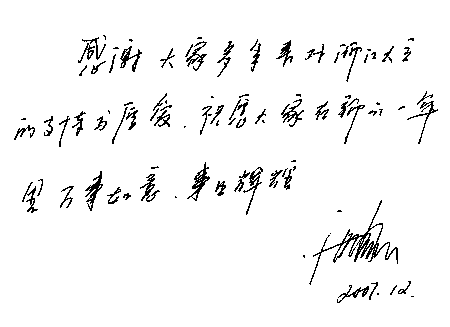 感谢大家多年来对浙江大立
的支持与厚爱.祝愿大家在新的一年
里万事如意.事业辉煌
2007.12.